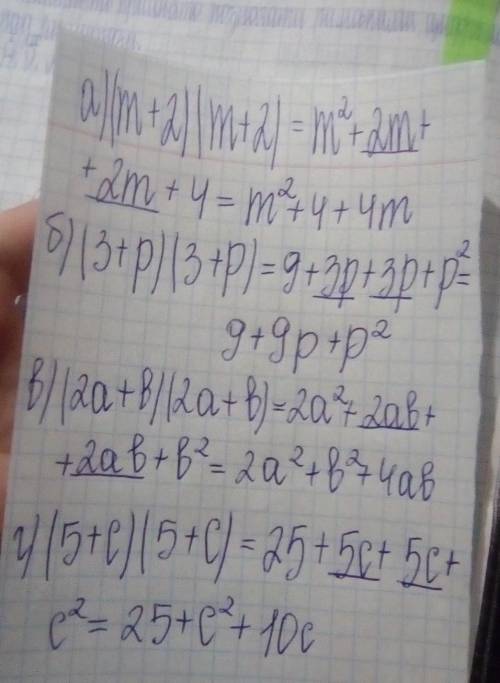 а) (m+2)(m+2) = m²+2m+
+2m+4 = m²+4+4m
б) (3+p)(3+p) = 9+3p+3p+p²=
9+9p+p²
в) (2a+b)(2a+b) = 2a²+2ab+
+2ab+b² = 2a²+b²+4ab
г) (5+c)(5+c) = 25+5c+5c+
c² = 25+c²+10c